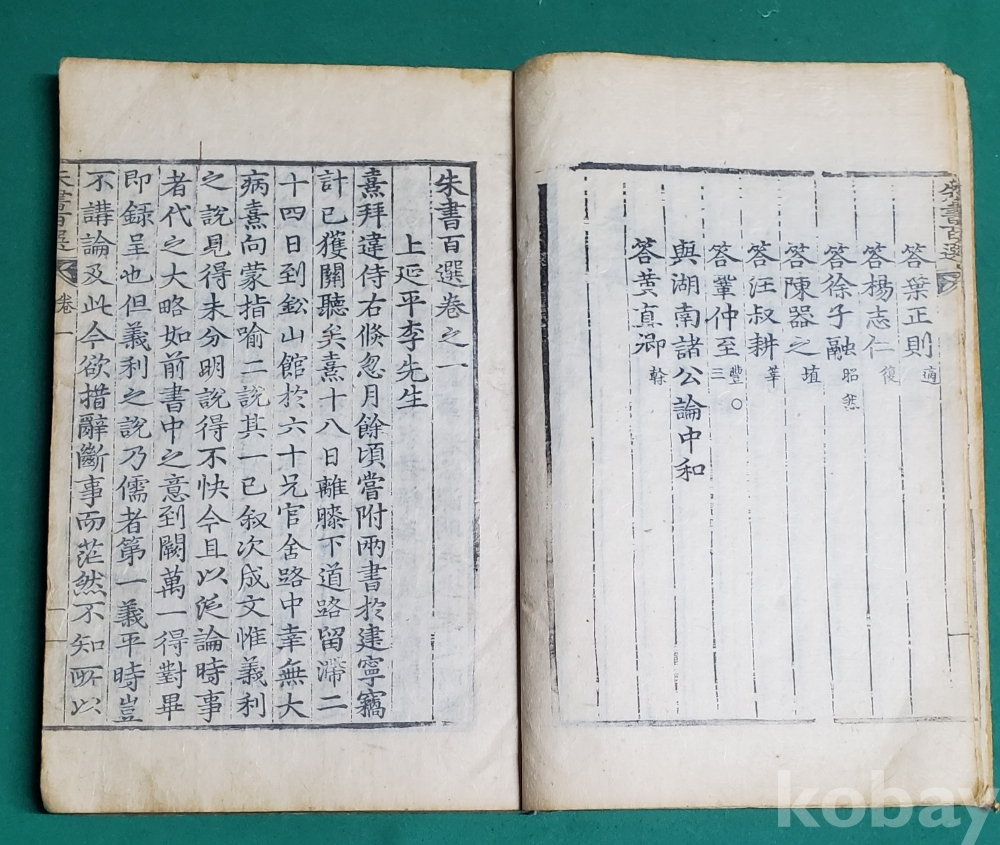 朱書百選
答葉正則 適
答楊志仁 復
答徐子融 昭然
答陳器之 埴
答汪叔耕 莘
答鞏仲至 豐○三
與湖南諸公論中和
答黃直卿 榦
朱書百選卷之一
上延平李先生
熹拜違侍右倐忽月餘頃嘗附兩書於建寧竊
計已獲關聽矣熹十八日離膝下道路留滯二
十四日到鈆山館於六十兄官舍路中幸無大
病熹向蒙指喻二說其一已叙次成文惟義利
之說見得未分明說得不快今且以泛論時事
者代之大略如前書中之意到闕萬一得對畢
即錄呈也但義利之說乃儒者第一義平時豈
不講論及此今欲措辭斷事而茫然不知所以
朱書百選 卷一
kobay